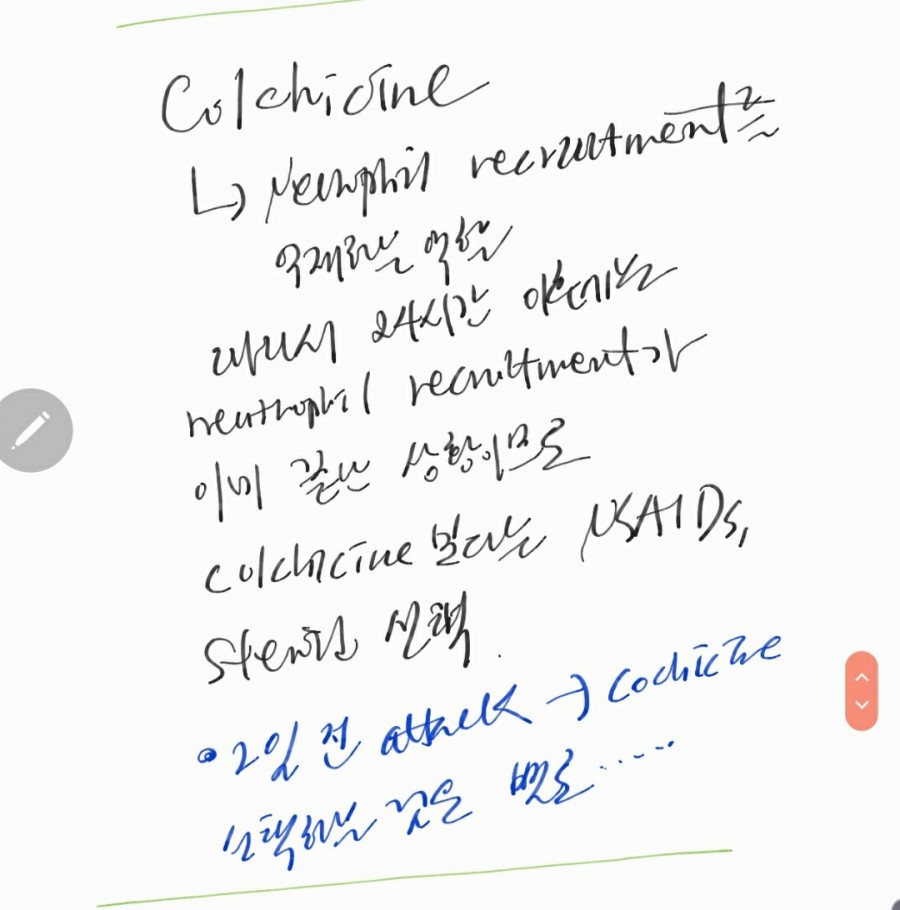 Colchicine
↳ Neutrophil recruitment를
억제하는 역할
따라서 24시간 이후에는
neutrophil recruitment가
이미 끝난 상황이므로
colchicine 보다는 NSAIDs,
steroid 선택.
• 2일 전 attack → Colchicine
선택하는 것은 별로.....